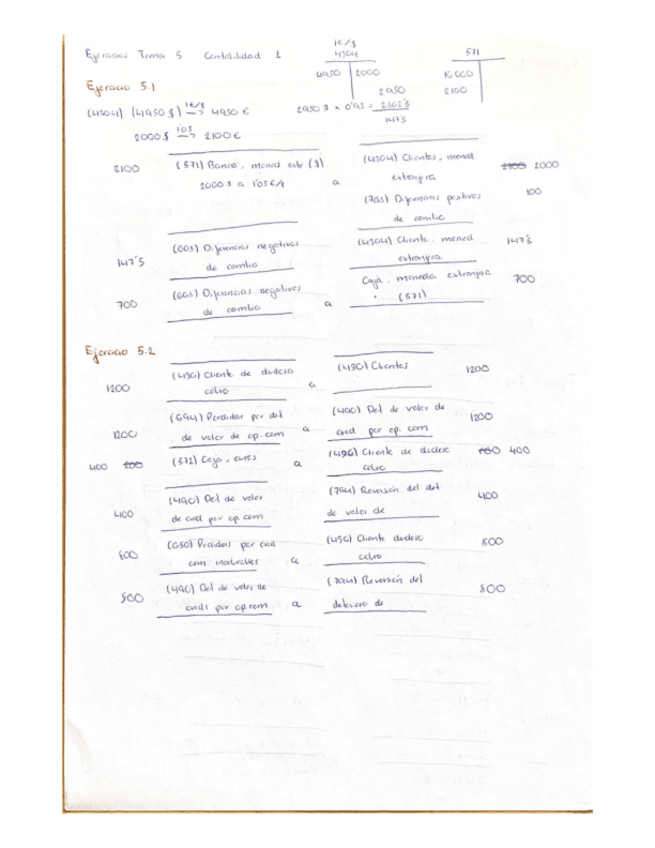 Ejercicios Tema 5 Contabilidad 1
1€/$
4304
4950 2000
2950
571
10000
2100
Ejercicio 5.1
(4304) (4950 $) 1€/$ → 4950 €
2950 $ x 0'95 =
147'5
2000 $ 1'05 → 2100 €
2100 (571) Banco, moned extr ($)
2000 $ a 1'05 €/$
a
(4304) Clientes, moned
extranjera
2100 2000
(768) Diferencias positivas
de cambio
100
147'5
(668) Diferencias negativas
de cambio
(4304) Cliente, moned
extranjera
147'5
700
(668) Diferencias negativas
de cambio
a
Caja, moneda extranjera
(571)
700
Ejercicio 5.2
1200 (436) Cliente de dudoso
cobro
a
(430) Clientes
1200
1200
(694) Perdidas por det
de valor de op. com
a
(490) Det de valor de
cred por op. com
1200
400
(572) Caja, euros
a
(436) Cliente de dudoso
cobro
400
400
(490) Det de valor
de cred por op. com
(794) Reversión del det
de valor de
400
800
(650) Perdidas por cred
com. incobrables
a
(436) Cliente dudoso
cobro
800
800
(490) Det de valor de
creds por op. com
a
(794) Reversión del
deterioro de
800